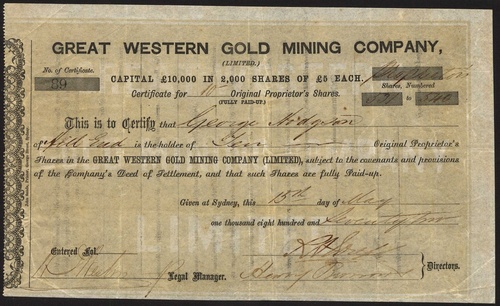 GREAT WESTERN GOLD MINING COMPANY,
(LIMITED.)
No. of Certificate.
89
CAPITAL £10,000 IN 2,000 SHARES OF £5 EACH.
Certificate for 10 Original Proprietor's Shares.
(FULLY PAID-UP.)
Shares, Numbered
to
This is to Certify that George Hodgson
of Hill End is the holder of Ten Original Proprietor's
Shares in the GREAT WESTERN GOLD MINING COMPANY (LIMITED), subject to the covenants and provisions
of the Company's Deed of Settlement, and that such Shares are fully Paid-up.
Given at Sydney, this 15th day of May
one thousand eight hundred and Seventy two
Entered Fol.
Legal Manager.
Henry
Directors.